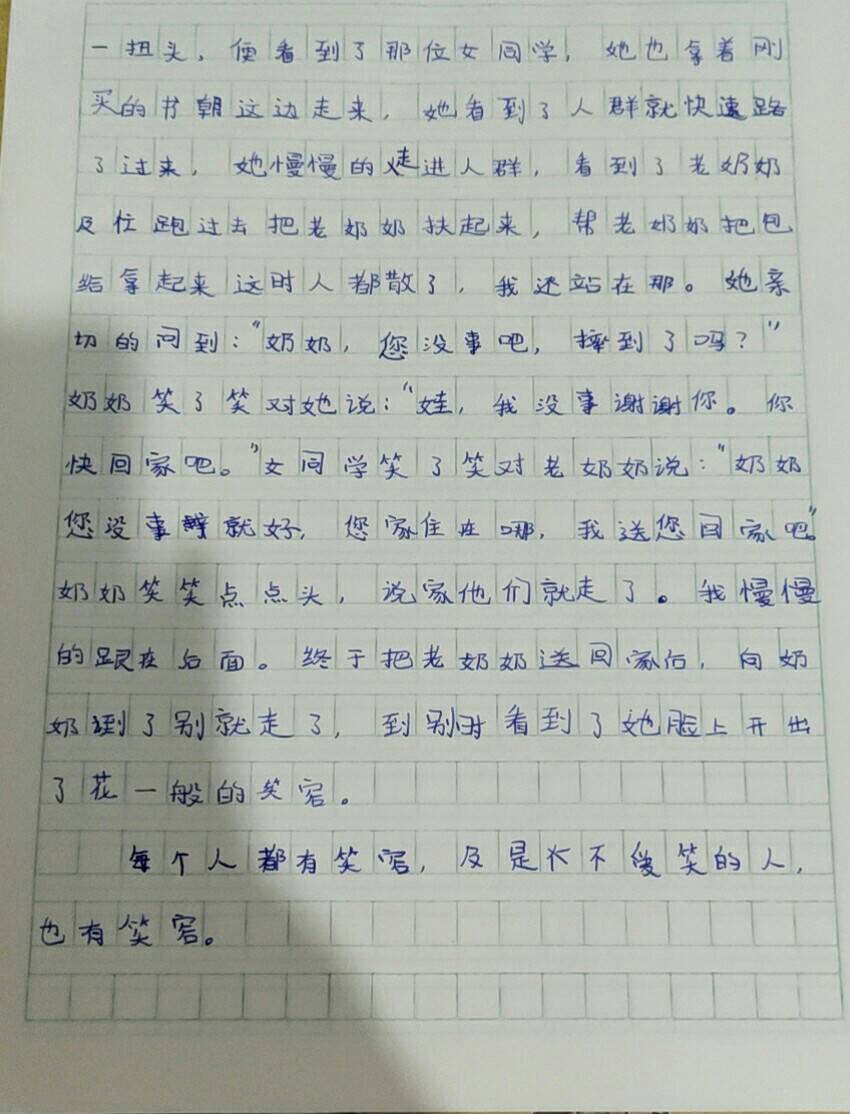 一扭头，便看到了那位女同学，她也拿着刚
买的书朝这边走来，她看到了人群就快速路
了过来，她慢慢的走进人群，看到了老奶奶
及忙跑过去把老奶奶扶起来，帮老奶奶把包
给拿起来这时人都散了，我还站在那。她亲
切的问到：“奶奶，您没事吧，摔到了吗？”
奶奶笑了笑对她说：“娃，我没事谢谢你。你
快回家吧。”女同学笑了笑对老奶奶说：“奶奶
您没事就好，您家住在哪，我送您回家吧。”
奶奶笑笑点点头，说家他们就走了。我慢慢
的跟在后面。终于把老奶奶送回家后，向奶
奶到了别就走了，到别时看到了她脸上开出
了花一般的笑容。
每个人都有笑容，及是不爱笑的人，
也有笑容。